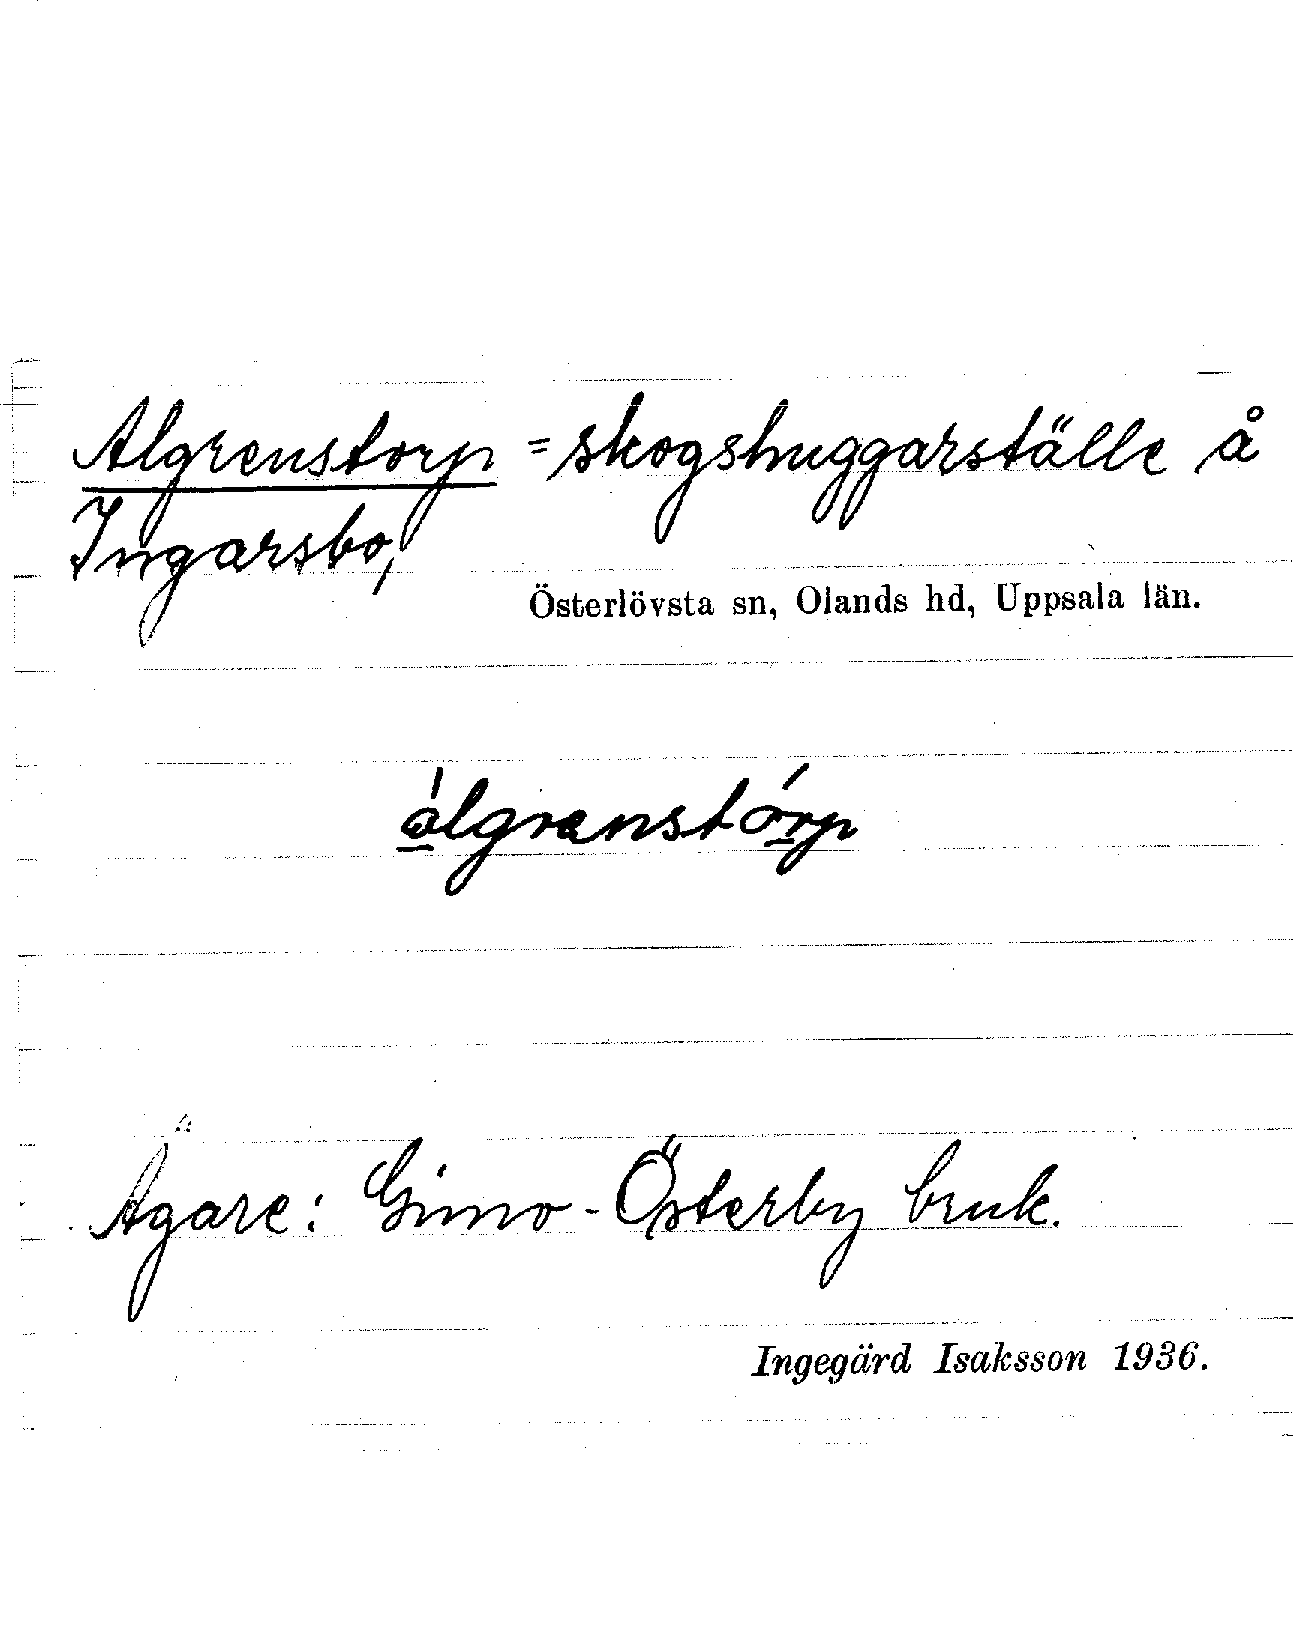 Algrenstorp = skogshuggarställe å
Ingarsbo,
Österlövsta sn, Olands hd, Uppsala län.
álgranstórp
Ägare: Gimo-Österby bruk.
Ingegärd Isaksson 1936.